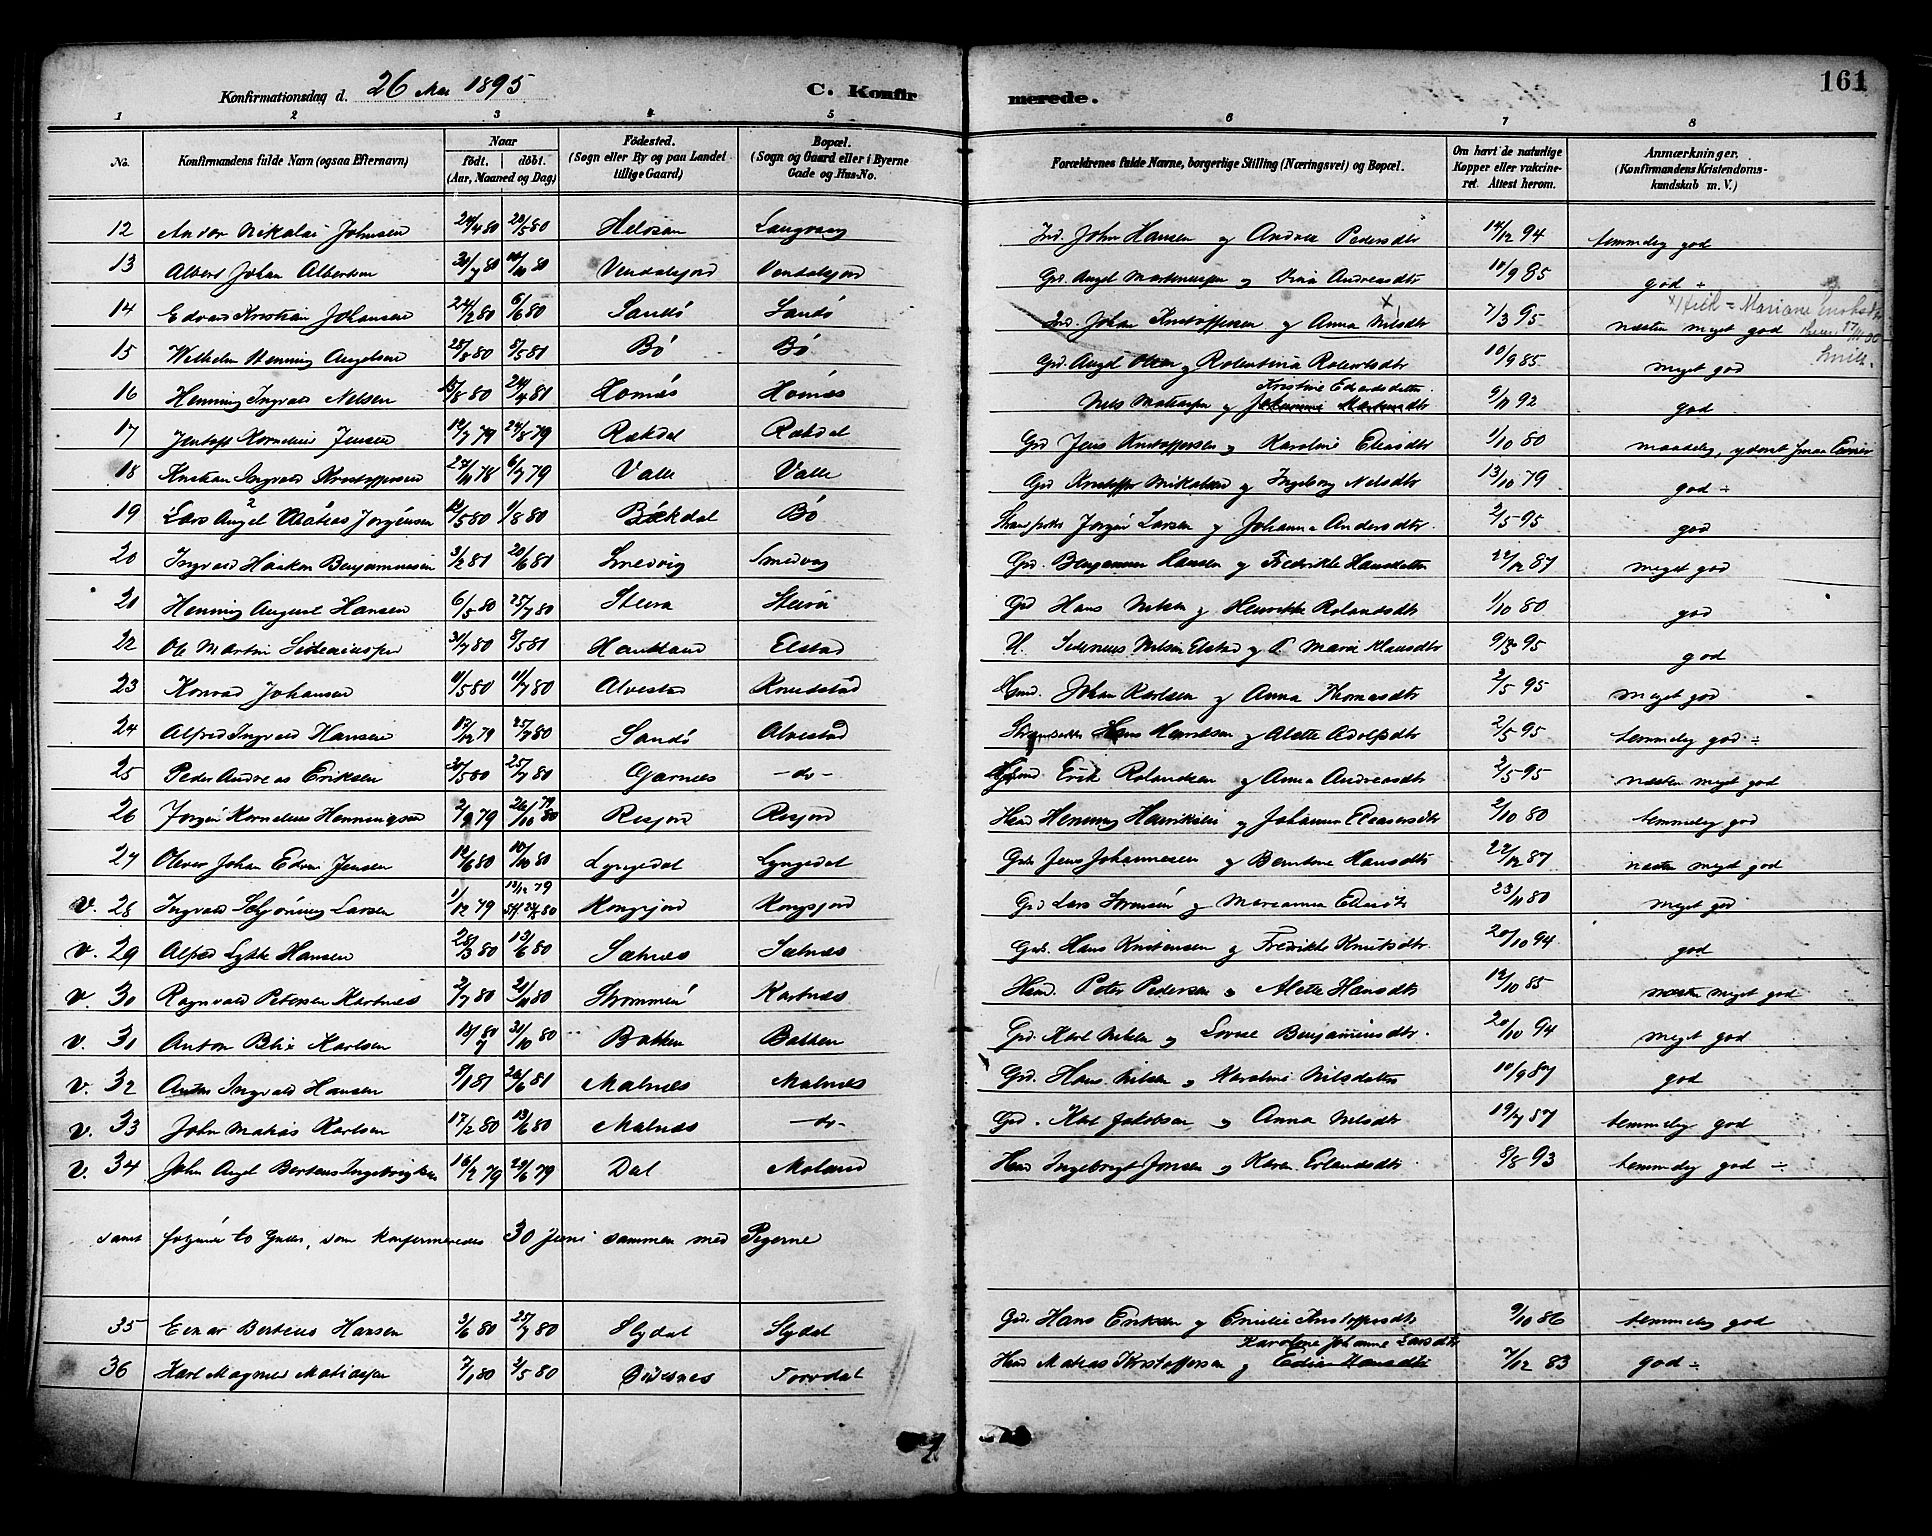 161
Konfirmationsdag d. 26 Mai 1895 C. Konfirmerede.
1 2 3 4 5 6 7 8
No. Konfirmandens fulde Navn (ogsaa Efternavn) Naar født. døbt. (Aar, Maaned og Dag) Fødested. (Sogn eller By og paa Landet tillige Gaard) Bopæl. (Sogn og Gaard eller i Byerne Gade og Hus-No. Forældrenes fulde Navne, borgerlige Stilling (Næringsvei) og Bopæl. Om havt de naturlige Kopper eller vakcineret. Attest herom. Anmærkninger. (Konfirmandens Kristendomskundskab m. V.)
12 Andor Nikolai Johnsen 24/4 80 /5 80 Helosan Langvag Ind. John Hansen og Andrea Pedersdtr 14/12 94 temmelig god
13 Albert Johan Albertsen 30/7 80 10/10 80 Vendalsjord Vendalsjord Grd. Angel og Andreasdtr 10/9 85 god ÷
14 Edvard Kristian Johansen 24/2 80 6/6 80 Sandö Sandö Ind. Johan Kristoffersen og Anna Nilsdtr 7/3 95 næsten meget god
15 Wilhelm Henning Angelsen 28/8 80 8/5 81 Bö Bö Grd. Angel Olsen og Rolentina Robertsdtr 10/9 85 meget god
16 Henning Ingvald Nelsen 15/8 80 24/4 81 Homös Homös Nels Matiasen og Kristine Edvardsdatter 9/11 92 god
17 Jentoft Kornelius Jensen 12/7 79 24/8 79 Rækdal Rækdal Grd Jens Kristoffersen og Karoline Eliasdtr 1/10 80 maadelig,
18 Kristian Ingvald Kristoffersen 27/11 78 6/7 79 Valle Valle Grd Kristoffer Nikolaisen og Ingeborg Nelsdtr 13/10 79 god ÷
19 Lars Angel Matias Jörgensen 12/5 80 1/8 80 Bækdal Bö Jörgen Larsen og Johanna Andersdtr. 2/5 95 god
20 Ingvald Haakon Benjaminsen 3/2 81 20/6 81 Smedvig Smedvag Grd. Benjamin Hansen og Fredrikke Hansdatter 22/12 87 meget god
21 Henning August Hansen 6/5 80 25/7 80 Steira Steira Grd Hans Nelsen og Henrikke Rolandsdtr 1/10 80 god
22 Ole Martin Sedeniussen 31/7 80 8/5 81 Haukland Elstad U. Sedenius Nelsen Elstad og P. Marie Hansdtr 95 god
23 Konrad Johansen 11/5 80 11/7 80 Alvestad Knudstad Hmd. Johan Karlsen og Anna Thomasdtr 2/5 95 meget god
24 Alfred Ingvald Hansen 12/12 79 25/7 80 Sandö Alvestad Hans Henriksen og Alette Adolfsdtr 2/5 95 temmelig god ÷
25 Peder Andreas Eriksen 30/5 80 25/7 80 Garnes -do- Erik Rolandsen og Anna Andreasdtr 2/5 95 næsten meget god
26 Jörgen Kornelius Henningsen 2/9 79 26/10 79 80 Resjord Resjord Hmd Henning Henriksen og Johanna Eleasersdtr 2/10 80 temmelig god
27 Oliver Johan Edvin Jensen 12/6 80 10/10 80 Lyngedal Lyngedal Grd. Jens Johannesen og Berntine Hansdtr 22/12 87 næsten meget god
V. 28 Ingvald Schjöning Larsen 1/12 79 13/12 79 80 Kongsjord Kongsjord Grd Lars Sörensen og Marianna 23/11 80 meget god
V. 29 Alfred Lytke Hansen 28/3 80 13/6 80 Sælnæs Sælnæs Grd. Hans Kristensen og Fredrikke Knutsdtr. 20/10 94 god
V. 30 Ragnvald Petersen Kartnæs 2/7 80 21/11 80 Strömmen Kartnæs Hmd. Peter Pedersen og Alette Hansdtr 12/10 85 næsten meget god
V. 31 Anton Blix Karlsen 18/7 80 31/10 80 Bakken Bakken Grd. Karl Nilsen og Lovise Benjaminsdtr. 20/10 94 meget god
V. 32 Ingvald Hansen 8/1 81 26/6 81 Malnæs Malnæs Grd. Hans Nilsen og Karoline Nilsdatter 10/9 87 god
V. 33 John Matias Karlsen 17/2 80 13/6 80 Malnæs -do- Grd. Karl Jakobsen og Anna Nelsdtr 19/7 87 temmelig god
V. 34 John Angel Berteus Ingebrigtsen 16/2 79 29/6 79 Dal Moland Hmd Ingebrigt Jonsen og Karen Erlandsdtr 8/8 93 temmelig god ÷
samt følgende to Gutter, som konfirmeredes 30 Juni sammen med Pigerne
35 Einar Berteus Hansen 3/6 80 25/7 80 Slydal Slydal Grd. Hans Eriksen og Emilie Kristoffersdtr 9/10 86 temmelig god
36 Karl Magnus Matiasen 7/1 80 2/5 80 Torvdal Hmd Matias Kristoffersen og Karoline Johanne Larsdtr 7/12 83 god ÷